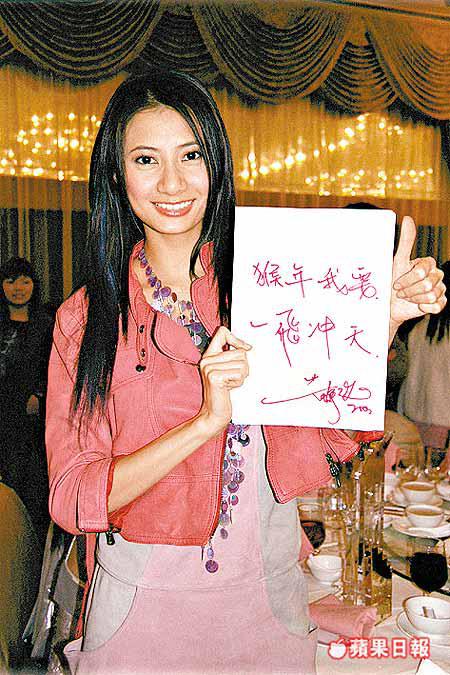 猴年我要
一飛冲天
蘋果日報